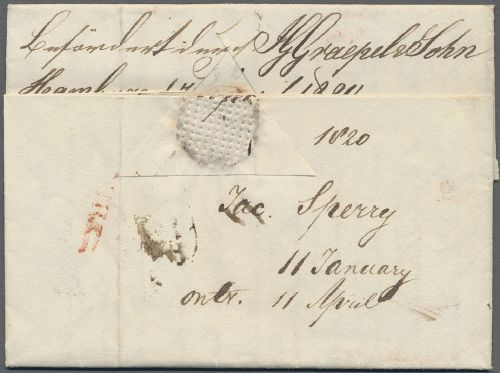 Befördert durch JG Graepel Sohn
Hamburg
1820
Jac. Sperry
11 January
ontv. 11 April